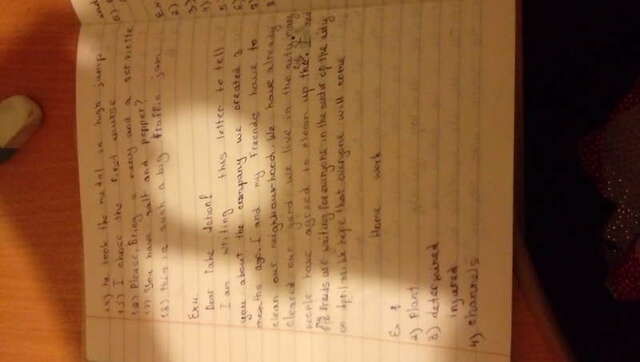 14) He took the medal in high jump
15) I chose the first course
16) Please, bring a menu and a serviette
17) You have salt and pepper?
18) this is such a big traffic jam
Ex4.
Dear Take Action!
I am writing this letter to tell
you about the company we created 3
months ago. I and my friends have to
clean our neighbourhood. We have already
cleared our yard we live in the city many
people have agreed to clean up the
are waiting for everyone in the of the city
on April we hope that everyone will come
Home work
Ex
2) Plant
3) determined
injured
4) channels